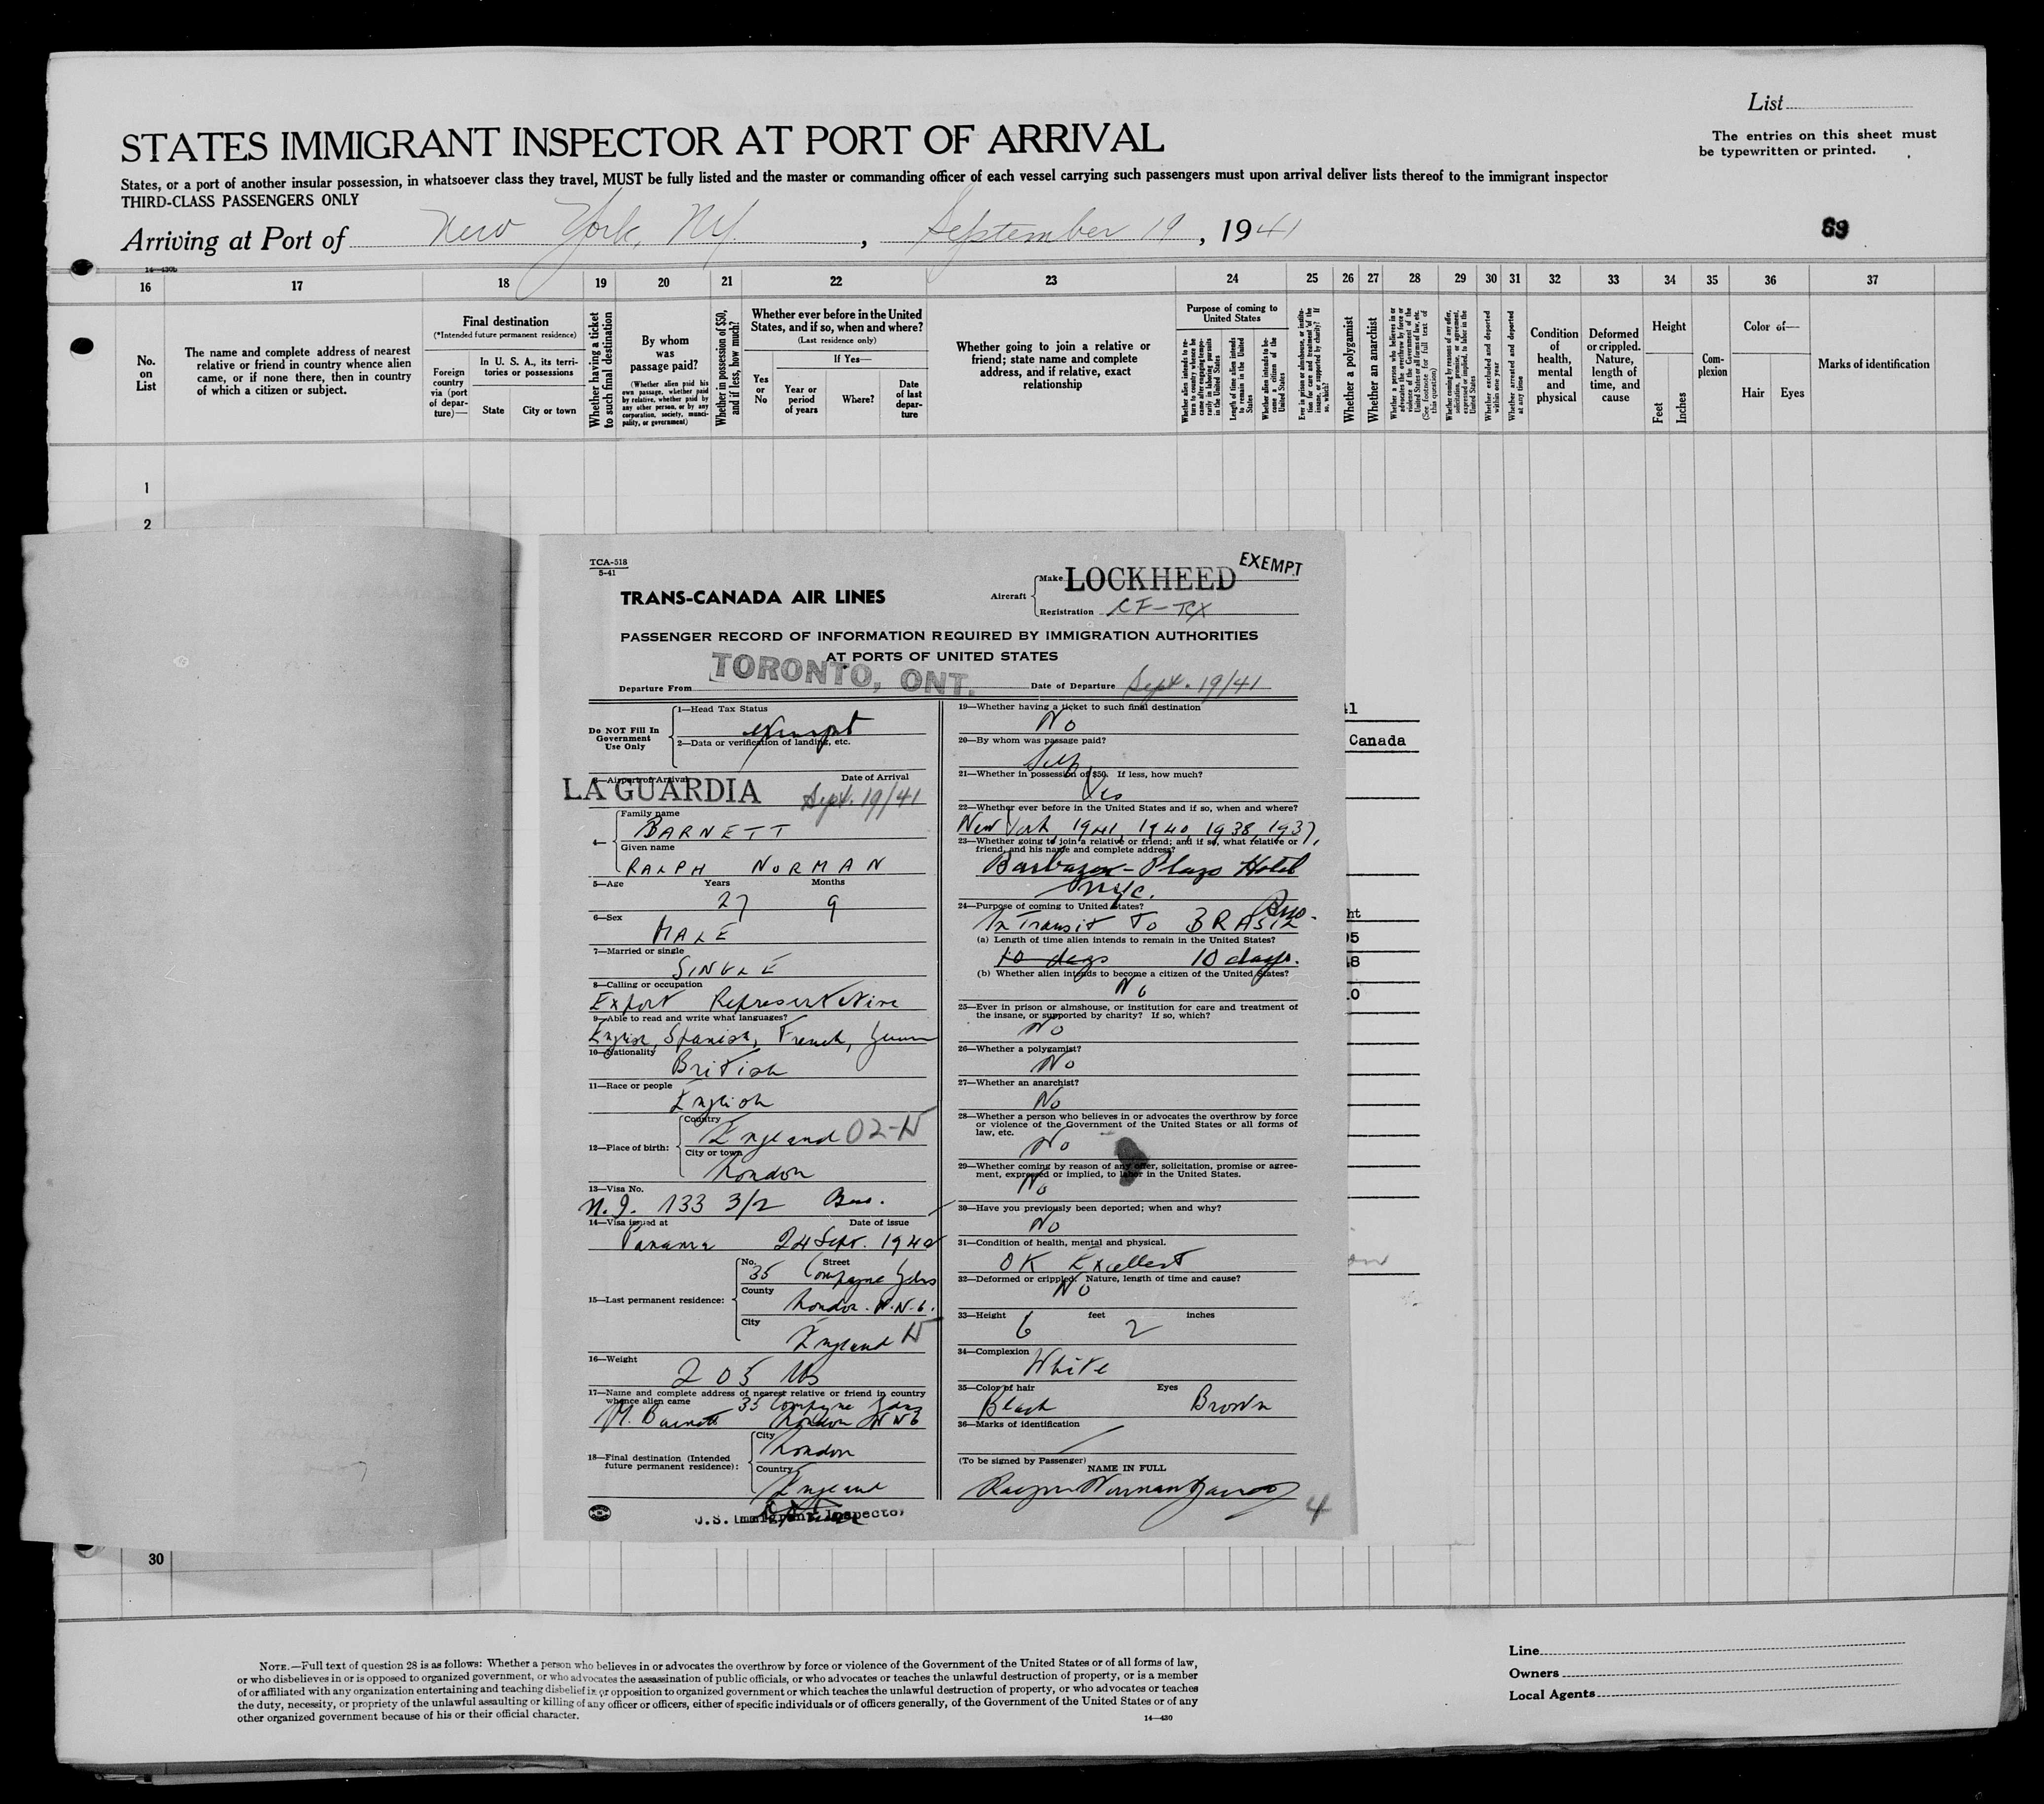 List
The entries on this sheet must
be typewritten or printed.
STATES IMMIGRANT INSPECTOR AT PORT OF ARRIVAL
States, or a port of another insular possession, in whatsoever class they travel, MUST be fully listed and the master or commanding officer of each vessel carrying such passengers must upon arrival deliver lists thereof to the immigrant inspector
THIRD-CLASS PASSENGERS ONLY
Arriving at Port of New York, NY. , September 19, 1941
69
14—430b
16 17 18 19 20 21 22 23 24 25 26 27 28 29 30 31 32 33 34 35 36 37
No. on List
The name and complete address of nearest
relative or friend in country whence alien
came, or if none there, then in country
of which a citizen or subject.
Final destination
(*Intended future permanent residence)
Foreign country via (port of departure)—
In U. S. A., its territories or possessions
State
City or town
Whether having a ticket to such final destination
By whom was passage paid?
(Whether alien paid his own passage, whether paid by relative, whether paid by any other person, or by any corporation, society, municipality, or government)
Whether in possession of $50, and if less, how much?
Whether ever before in the United States, and if so, when and where?
(Last residence only)
Yes or No
If Yes—
Year or period of years
Where?
Date of last departure
Whether going to join a relative or
friend; state name and complete
address, and if relative, exact
relationship
Purpose of coming to United States
Whether alien intends to return to country whence he came after engaging temporarily in laboring pursuits in the United States
Length of time alien intends to remain in the United States
Whether alien intends to become a citizen of the United States
Ever in prison or almshouse, or institution for care and treatment of the insane, or supported by charity? If so, which?
Whether a polygamist
Whether an anarchist
Whether a person who believes in or advocates the overthrow by force or violence of the Government of the United States or all forms of law, etc. (See footnote for full text of this question)
Whether coming by reasons of any offer, solicitation, promise, or agreement, expressed or implied, to labor in the United States
Whether excluded and deported within one year
Whether arrested and deported at any time
Condition of health, mental and physical
Deformed or crippled. Nature, length of time, and cause
Height
Feet
Inches
Complexion
Color of—
Hair
Eyes
Marks of identification
1
2
TCA-518
5-41
TRANS-CANADA AIR LINES
Aircraft
Make LOCKHEED
EXEMPT
Registration CF-TCX
PASSENGER RECORD OF INFORMATION REQUIRED BY IMMIGRATION AUTHORITIES
AT PORTS OF UNITED STATES
Departure From TORONTO, ONT. Date of Departure Sept. 19/41
Do NOT Fill In
Government
Use Only
1—Head Tax Status
exempt
2—Data or verification of landing, etc.
3—Airport of Arrival Date of Arrival
LA GUARDIA Sept. 19/41
4—
Family name
BARNETT
Given name
RALPH NORMAN
5—Age Years Months
27 9
6—Sex
MALE
7—Married or single
SINGLE
8—Calling or occupation
Export Representative
9—Able to read and write what languages?
English, Spanish, French, German
10—Nationality
British
11—Race or people
English
12—Place of birth:
Country
England 02-N
City or town
London
13—Visa No.
N.I. 133 3/2 Bus.
14—Visa issued at Date of issue
Panama 24 Sept. 1940
15—Last permanent residence:
No. Street
35 Compayne Gdns
County
London. N.W.6.
City
England
16—Weight
205 lbs
17—Name and complete address of nearest relative or friend in country
whence alien came 35 Compayne Gdns
M. Barnett London NW6
18—Final destination (Intended
future permanent residence):
City
London
Country
England
U.S. Immigrant Inspector
19—Whether having a ticket to such final destination
No
20—By whom was passage paid?
Self
21—Whether in possession of $50. If less, how much?
Yes
22—Whether ever before in the United States and if so, when and where?
New York, 1941, 1940, 1938, 1937,
23—Whether going to join a relative or friend; and if so, what relative or
friend, and his name and complete address?
Barbazon-Plaza Hotel
NYC.
24—Purpose of coming to United States?
Bus.
In Transit to BRASIL
(a) Length of time alien intends to remain in the United States?
10 days 10 days.
(b) Whether alien intends to become a citizen of the United States?
No
25—Ever in prison or almshouse, or institution for care and treatment of
the insane, or supported by charity? If so, which?
No
26—Whether a polygamist?
No
27—Whether an anarchist?
No
28—Whether a person who believes in or advocates the overthrow by force
or violence of the Government of the United States or all forms of
law, etc.
No
29—Whether coming by reason of any offer, solicitation, promise or agree-
ment, expressed or implied, to labor in the United States.
No
30—Have you previously been deported; when and why?
No
31—Condition of health, mental and physical.
OK Excellent
32—Deformed or crippled. Nature, length of time and cause?
No
33—Height feet inches
6 2
34—Complexion
White
35—Color of hair Eyes
Black Brown
36—Marks of identification
(To be signed by Passenger)
NAME IN FULL
Ralph Norman Barnett
4
41
Canada
ht
05
48
10
30
NOTE.—Full text of question 28 is as follows: Whether a person who believes in or advocates the overthrow by force or violence of the Government of the United States or of all forms of law,
or who disbelieves in or is opposed to organized government, or who advocates the assassination of public officials, or who advocates or teaches the unlawful destruction of property, or is a member
of or affiliated with any organization entertaining and teaching disbelief in or opposition to organized government or which teaches the unlawful destruction of property, or who advocates or teaches
the duty, necessity, or propriety of the unlawful assaulting or killing of any officer or officers, either of specific individuals or of officers generally, of the Government of the United States or of any
other organized government because of his or their official character.
14—430
Line
Owners
Local Agents